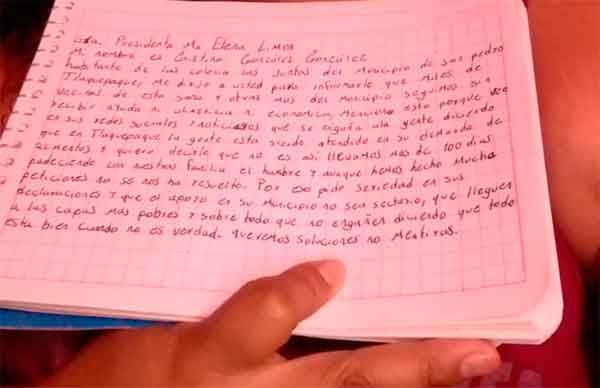 Lda. Presidenta Ma Elena Limon
Mi nombre es Cristina González González
habitante de la colonia las Juntas del Municipio de san pedro
Tlaquepaque; me dirijo a usted para informarle que miles de
vecinas de esta zona y otras mas del municipio seguimos sin
recibir ayuda ni alimenticia ni economica, Menciono esto porque veo
en sus redes sociales y noticieros que se engaña ala gente diciendo
que en Tlaquepaque la gente esta siendo atendida en su demanda de
alimentos y quiero decirle que no es asi llevamos mas de 100 dias
padeciendo con nuestras familia el hambre y aunque hemos hecho muchas
peticiones no se nos ha resuelto. Por eso pido seriedad en sus
declaraciones y que el apoyo en su Municipio no sea sectario, que lleguen
a las capas mas pobres y sobre todo que no engañen diciendo que todo
esta bien cuando no es verdad. Queremos soluciones no Mentiras.